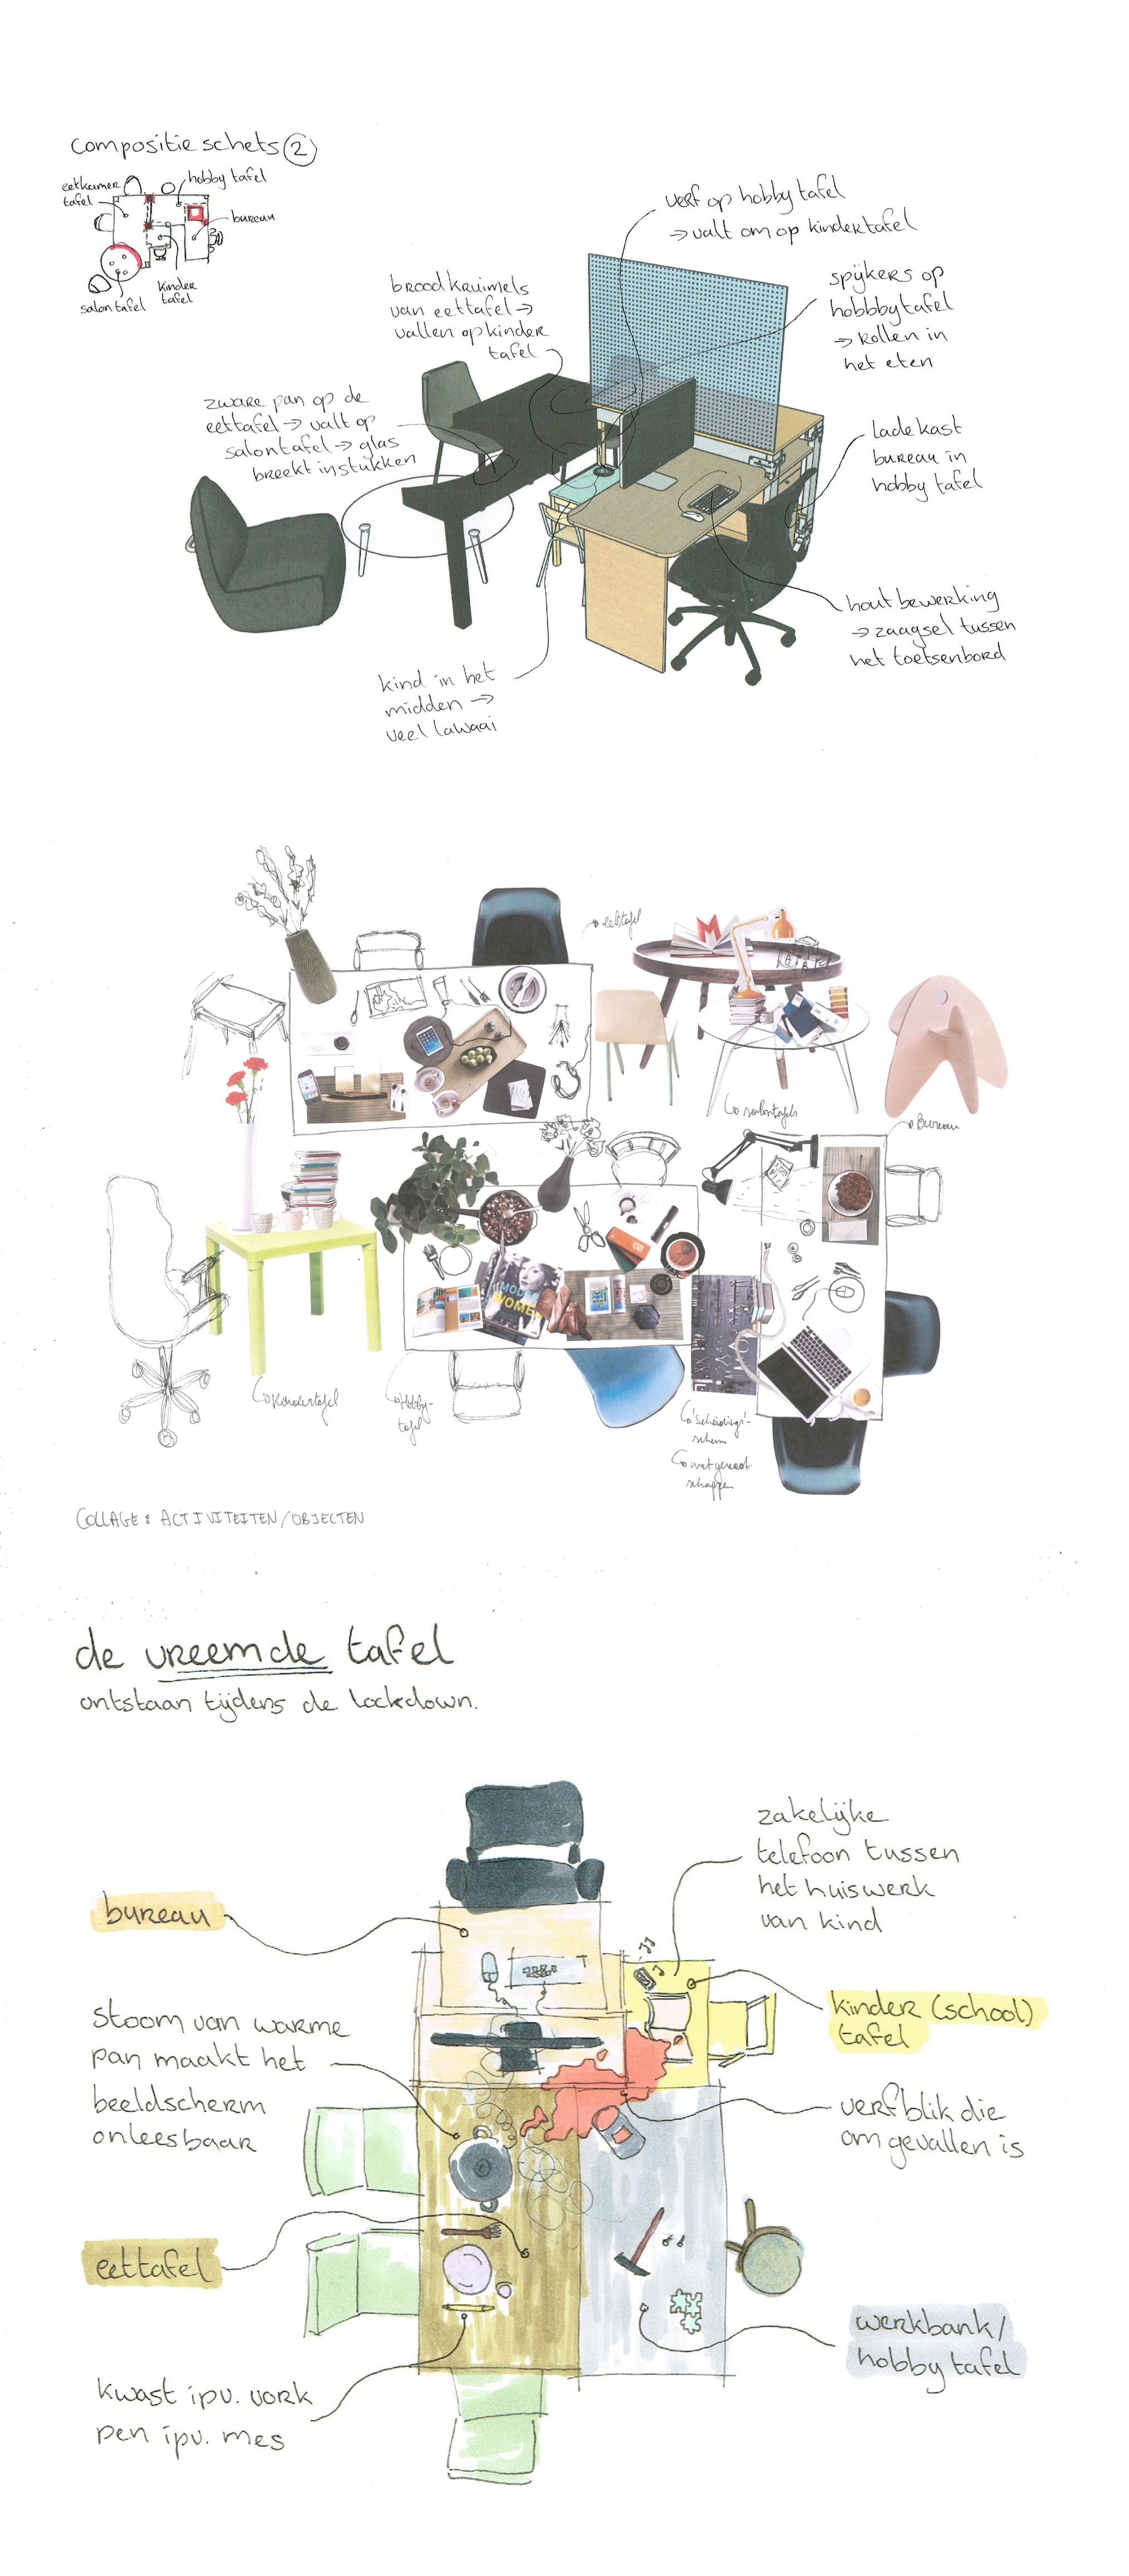 compositie schets 2
eetkamer
tafel
hobby tafel
bureau
salon tafel
kinder
tafel
verf op hobby tafel
→ valt om op kindertafel
brood kruimels
van eettafel →
vallen op kinder
tafel
spijkers op
hobbbytafel
→ rollen in
het eten
zware pan op de
eettafel → valt op
salontafel → glas
breekt in stukken
lade kast
bureau in
hobby tafel
hout bewerking
→ zaagsel tussen
het toetsenbord
kind in het
midden →
veel lawaai
eettafel
salontafels
Bureau
MODE
WOMEN
Kindertafel
Hobby-
tafel
'Scheidings'-
scherm
met gereed
schappen
COLLAGE: ACTIVITEITEN/OBJECTEN
de vreemde tafel
ontstaan tijdens de lockdown.
zakelijke
telefoon tussen
het huiswerk
van kind
bureau
kinder (school)
tafel
stoom van warme
pan maakt het
beeldscherm
onleesbaar
verfblik die
omgevallen is
eettafel
werkbank/
hobby tafel
kwast ipv. vork
pen ipv. mes